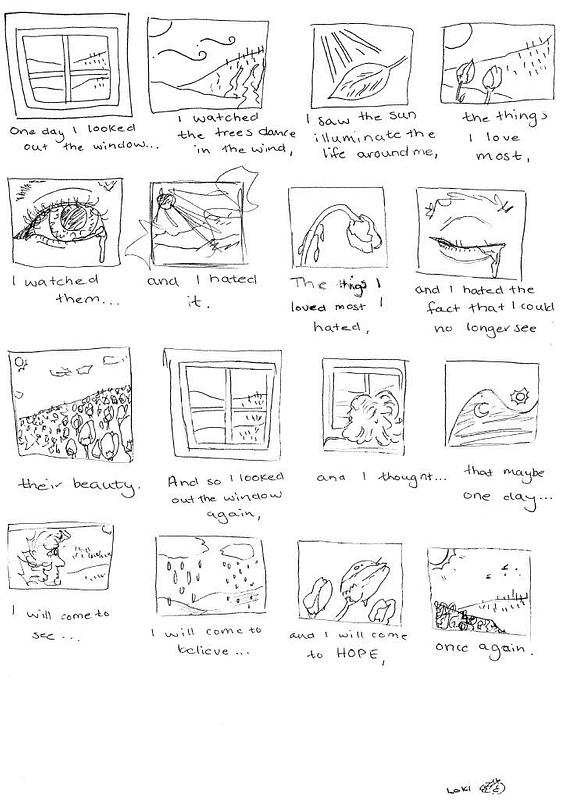 One day I looked
out the window...
I watched
the trees dance
in the wind,
I saw the sun
illuminate the
life around me,
the things
I love
most,
I watched
them...
and I hated
it.
The things I
loved most I
hated,
and I hated the
fact that I could
no longer see
their beauty.
And so I looked
out the window
again,
and I thought...
that maybe
one day...
I will come to
see...
I will come to
believe...
and I will come
to HOPE,
once again.
LOKI